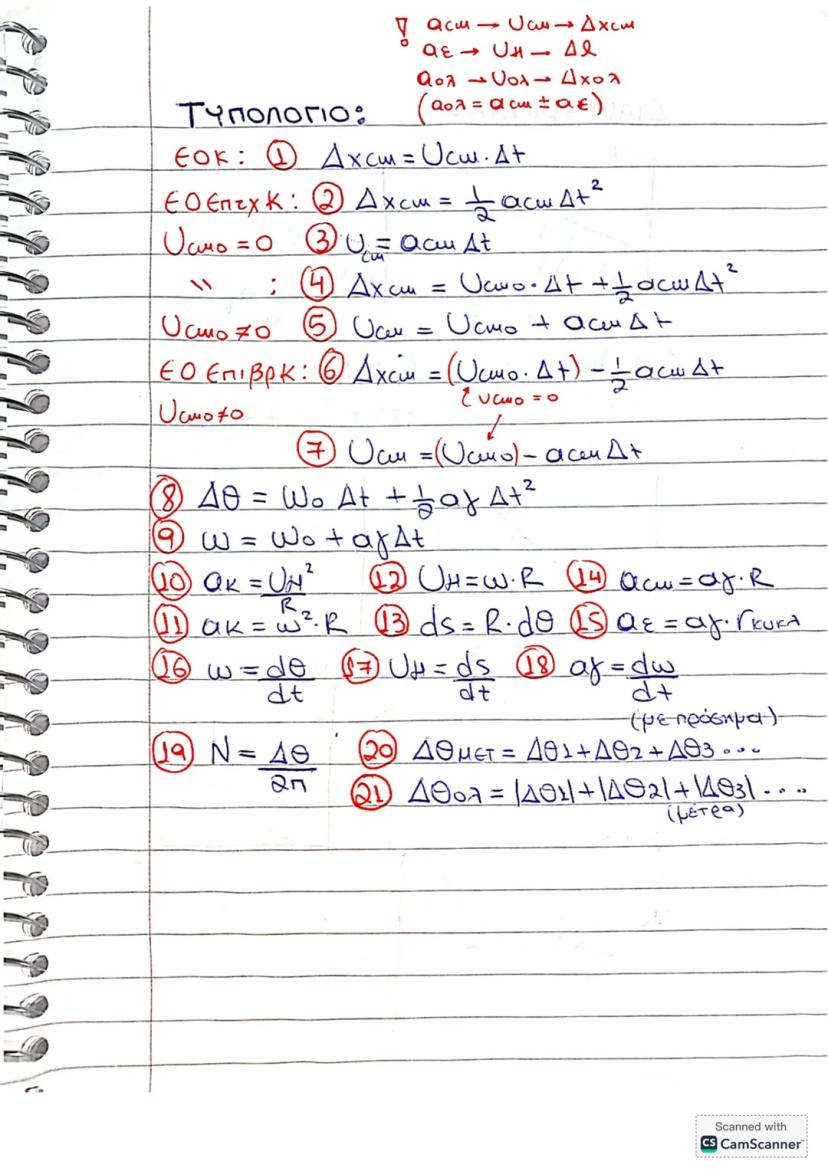 ! αcm → Ucm → Δxcm
αε → UΗ → Δl
αολ → Uολ → Δxολ
(αολ = αcm ± αε)
ΤΥΠΟΛΟΓΙΟ:
ΕΟΚ: ① Δxcm = Ucm · Δt
ΕΟΕπιχΚ: ② Δxcm = 1/2 αcm Δt²
Ucmo = 0 ③ Ucm = αcm Δt
" : ④ Δxcm = Ucmo · Δt + 1/2 αcm Δt²
Ucmo ≠ 0 ⑤ Ucm = Ucmo + αcm Δt
ΕΟΕπιβρΚ: ⑥ Δxcm = (Ucmo · Δt) - 1/2 αcm Δt
Ucmo ≠ 0 Ucmo = 0
⑦ Ucm = (Ucmo) - αcm Δt
⑧ Δθ = ωο Δt + 1/2 αγ Δt²
⑨ ω = ωο + αγ Δt
⑩ ακ = UΗ²/R ⑫ UΗ = ω · R ⑭ αcm = αγ · R
⑪ ακ = ω² · R ⑬ ds = R · dθ ⑮ αε = αγ · rκυκλ
⑯ ω = dθ/dt ⑰ UΗ = ds/dt ⑱ αγ = dω/dt
(με πρόσημα)
⑲ N = Δθ/2π ⑳ Δθμετ = Δθ1 + Δθ2 + Δθ3 ...
㉑ Δθολ = |Δθ1| + |Δθ2| + |Δθ3| ....
(μέτρα)
Scanned with
CS CamScanner